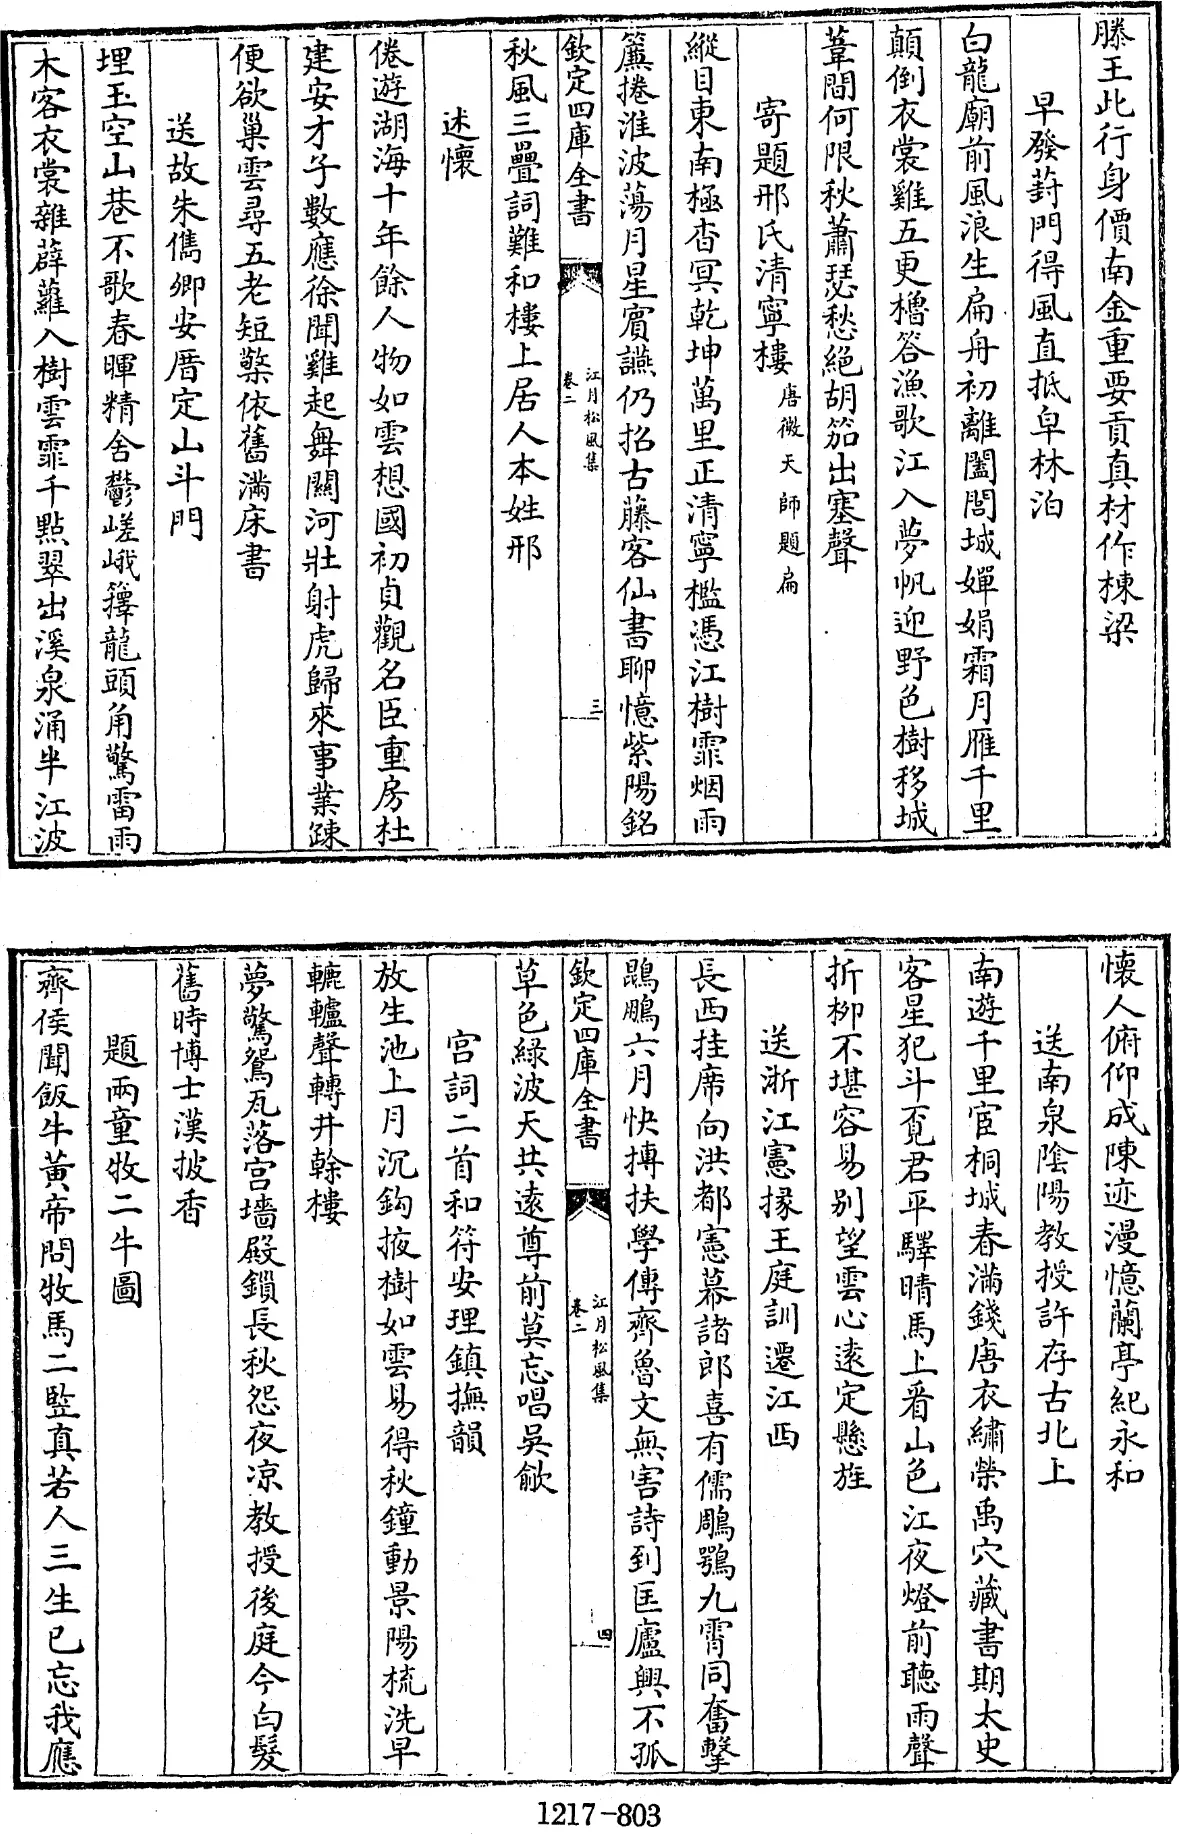 滕王此行身價南金重要貢真材作棟梁
早發葑門得風直抵皁林泊
白龍廟前風浪生扁舟初離闔閭城嬋娟霜月雁千里
顛倒衣裳雞五更櫓答漁歌江入夢帆迎野色樹移城
葦間何限秋蕭瑟愁絕胡笳出塞聲
寄題邢氏清寧樓唐微天師題扁
縱目東南極杳冥乾坤萬里正清寧檻憑江樹霏烟雨
簾捲淮波蕩月星賓讌仍招古藤客仙書聊憶紫陽銘
欽定四庫全書
江月松風集
卷二
三
秋風三疊詞難和樓上居人本姓邢
述懷
倦遊湖海十年餘人物如雲想國初貞觀名臣重房杜
建安才子數應徐聞雞起舞關河壯射虎歸來事業疎
便欲巢雲尋五老短檠依舊滿床書
送故朱儁卿安厝定山斗門
埋玉空山巷不歌春暉精舍鬱嵯峨籜龍頭角驚雷雨
木客衣裳雜薜蘿入樹雲霏千點翠出溪泉涌半江波
懷人俯仰成陳迹漫憶蘭亭紀永和
送南泉陰陽教授許存古北上
南遊千里宦桐城春滿錢唐衣繡榮禹穴藏書期太史
客星犯斗覔君平驛晴馬上看山色江夜燈前聽雨聲
折柳不堪容易別望雲心遠定懸旌
送浙江憲掾王庭訓遷江西
長西挂席向洪都憲幕諸郎喜有儒鵰鶚九霄同奮擊
鵾鵬六月快摶扶學傳齊魯文無害詩到匡廬興不孤
欽定四庫全書
江月松風集
卷二
四
草色綠波天共遠尊前莫忘唱吳歈
宫詞二首和符安理鎮撫韻
放生池上月沉鈎掖樹如雲易得秋鐘動景陽梳洗早
轆轤聲轉井榦樓
夢驚鴛瓦落宫墻殿鎖長秋怨夜凉教授後庭今白髮
舊時博士漢披香
題兩童牧二牛圖
齊侯聞飯牛黃帝問牧馬二竪真若人三生已忘我應
1217-803